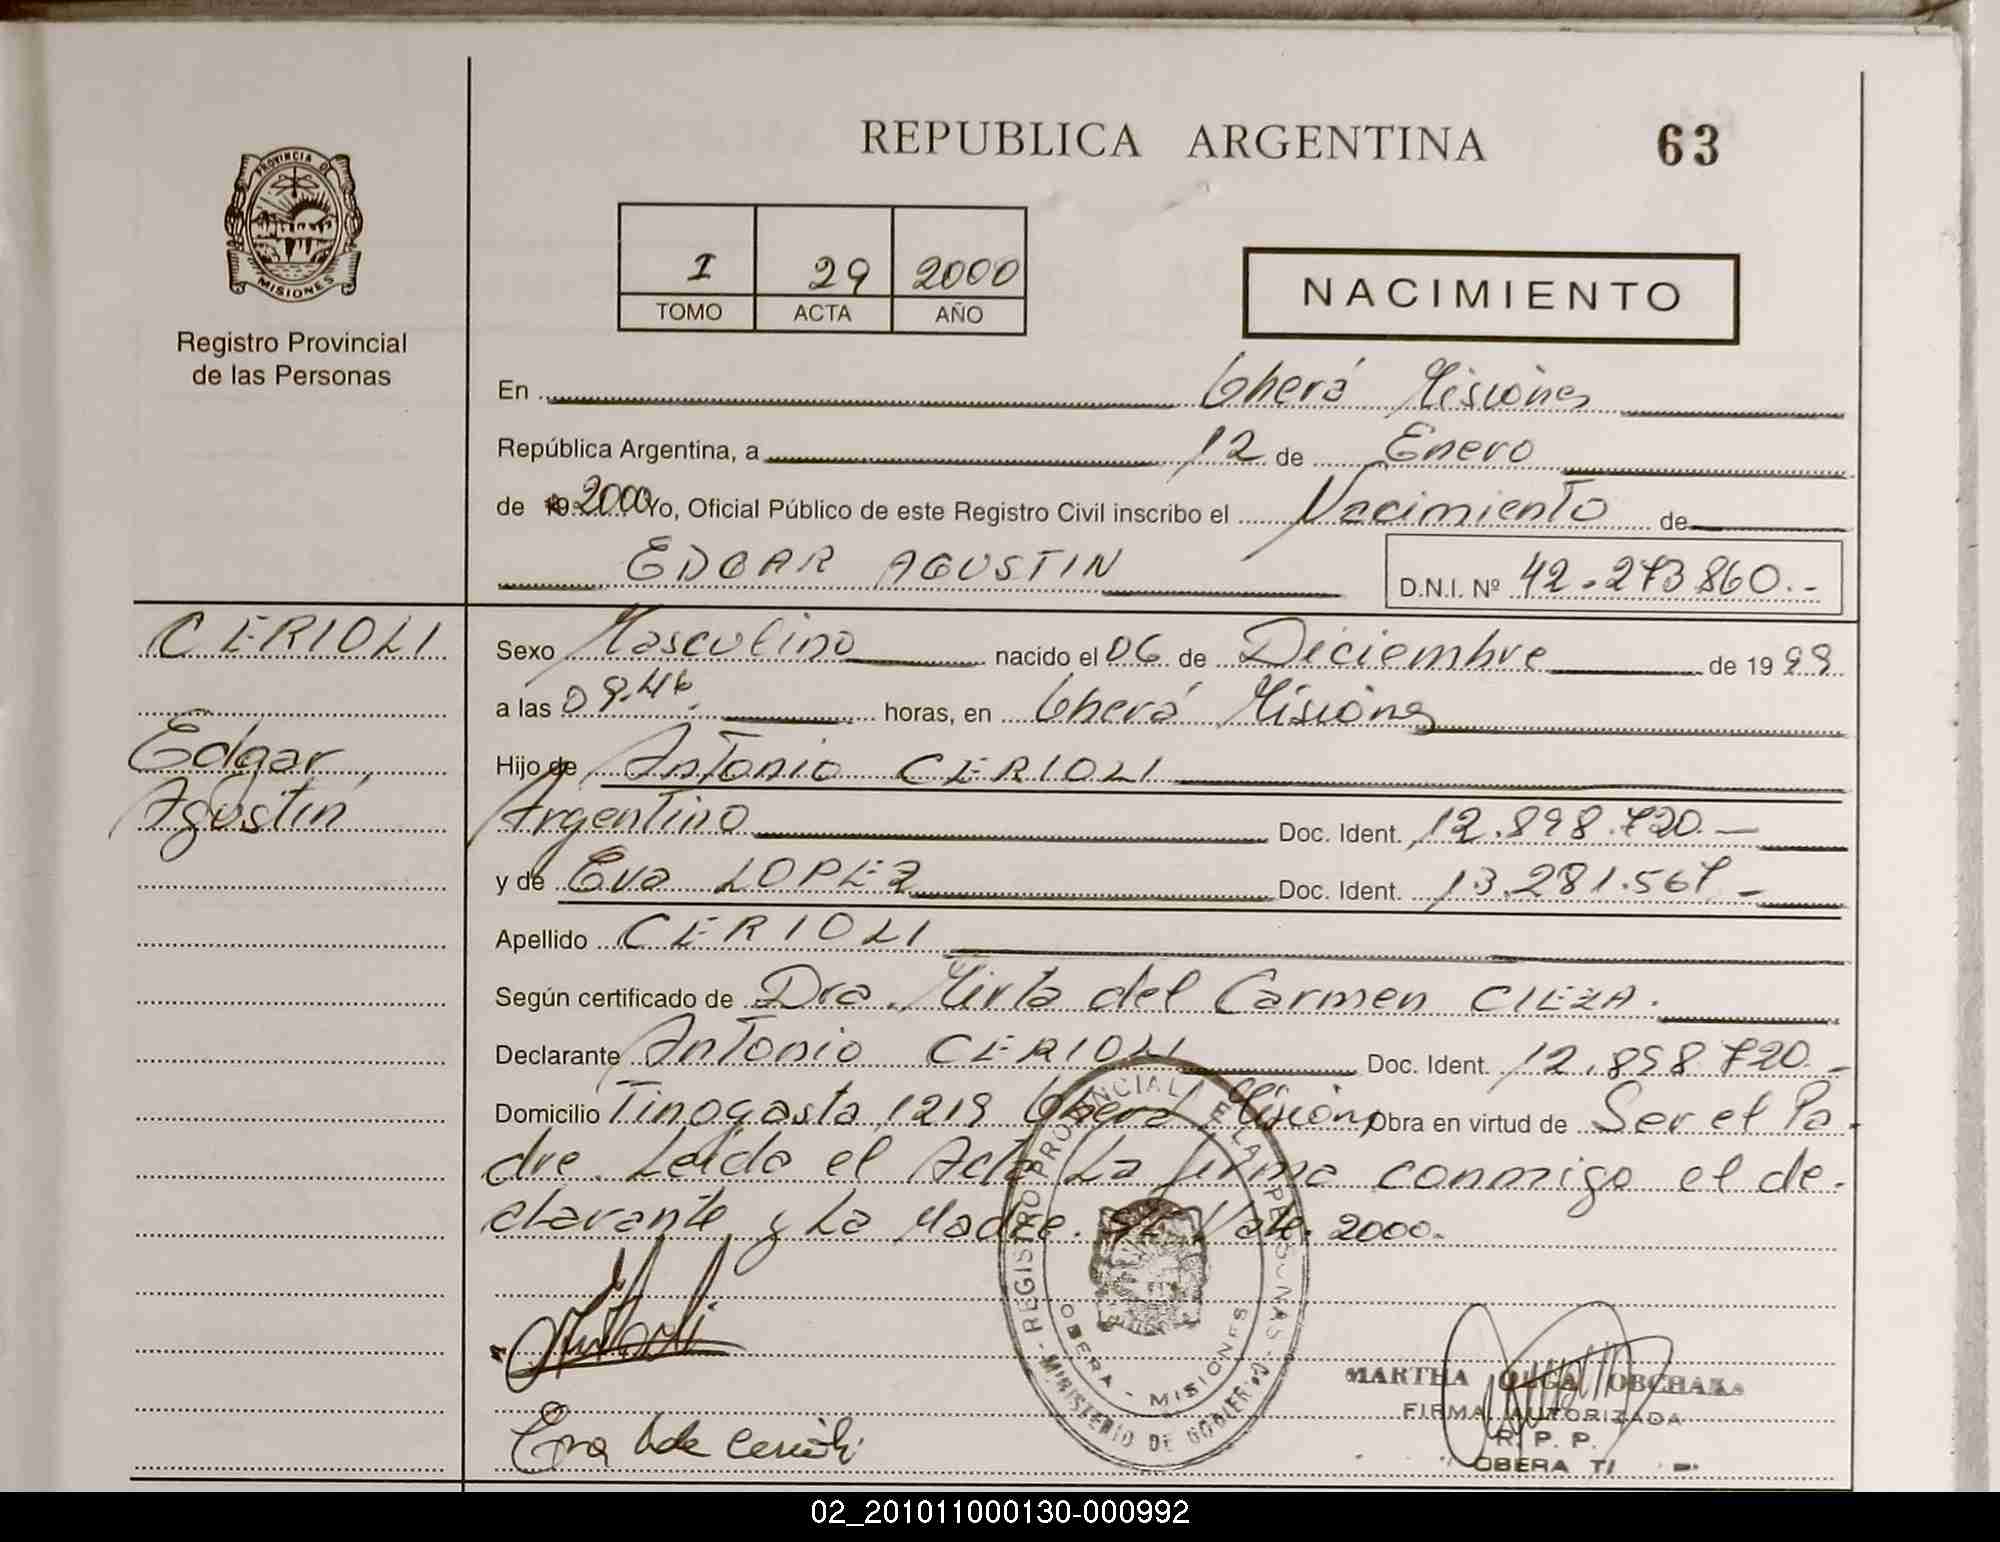 REPUBLICA ARGENTINA 63
PROVINCIA DE
MISIONES
Registro Provincial
de las Personas
I 29 2000
TOMO ACTA AÑO
NACIMIENTO
En Oberá Misiones
República Argentina, a 12 de Enero
de 19 2000 Yo, Oficial Público de este Registro Civil inscribo el Nacimiento de
EDGAR AGUSTIN D.N.I. Nº 42.273860.-
CERIOLI
Edgar
Agustín
Sexo Masculino nacido el 06 de Diciembre de 1999
a las 09.46. horas, en Oberá Misiones
Hijo de Antonio CERIOLI
Argentino Doc. Ident. 12.898.720.-
y de Eva LOPEZ Doc. Ident. 13.281.567-
Apellido CERIOLI
Según certificado de Dra. Mirta del Carmen CIEZA.
Declarante Antonio CERIOLI Doc. Ident. 12.898.720.-
Domicilio Tinogasta 1219 Oberá Misiones Obra en virtud de Ser el Pa-
dre. Leída el Acta La firma conmigo el de-
clarante y La Madre. Vale. 2000-
REGISTRO PROVINCIAL DE LAS PERSONAS - MINISTERIO DE GOBIERNO
OBERA - MISIONES
Eva de Cerioli
MARTHA OLGA OBCHAKA
FIRMA AUTORIZADA
R. P. P.
OBERA
02_201011000130-000992